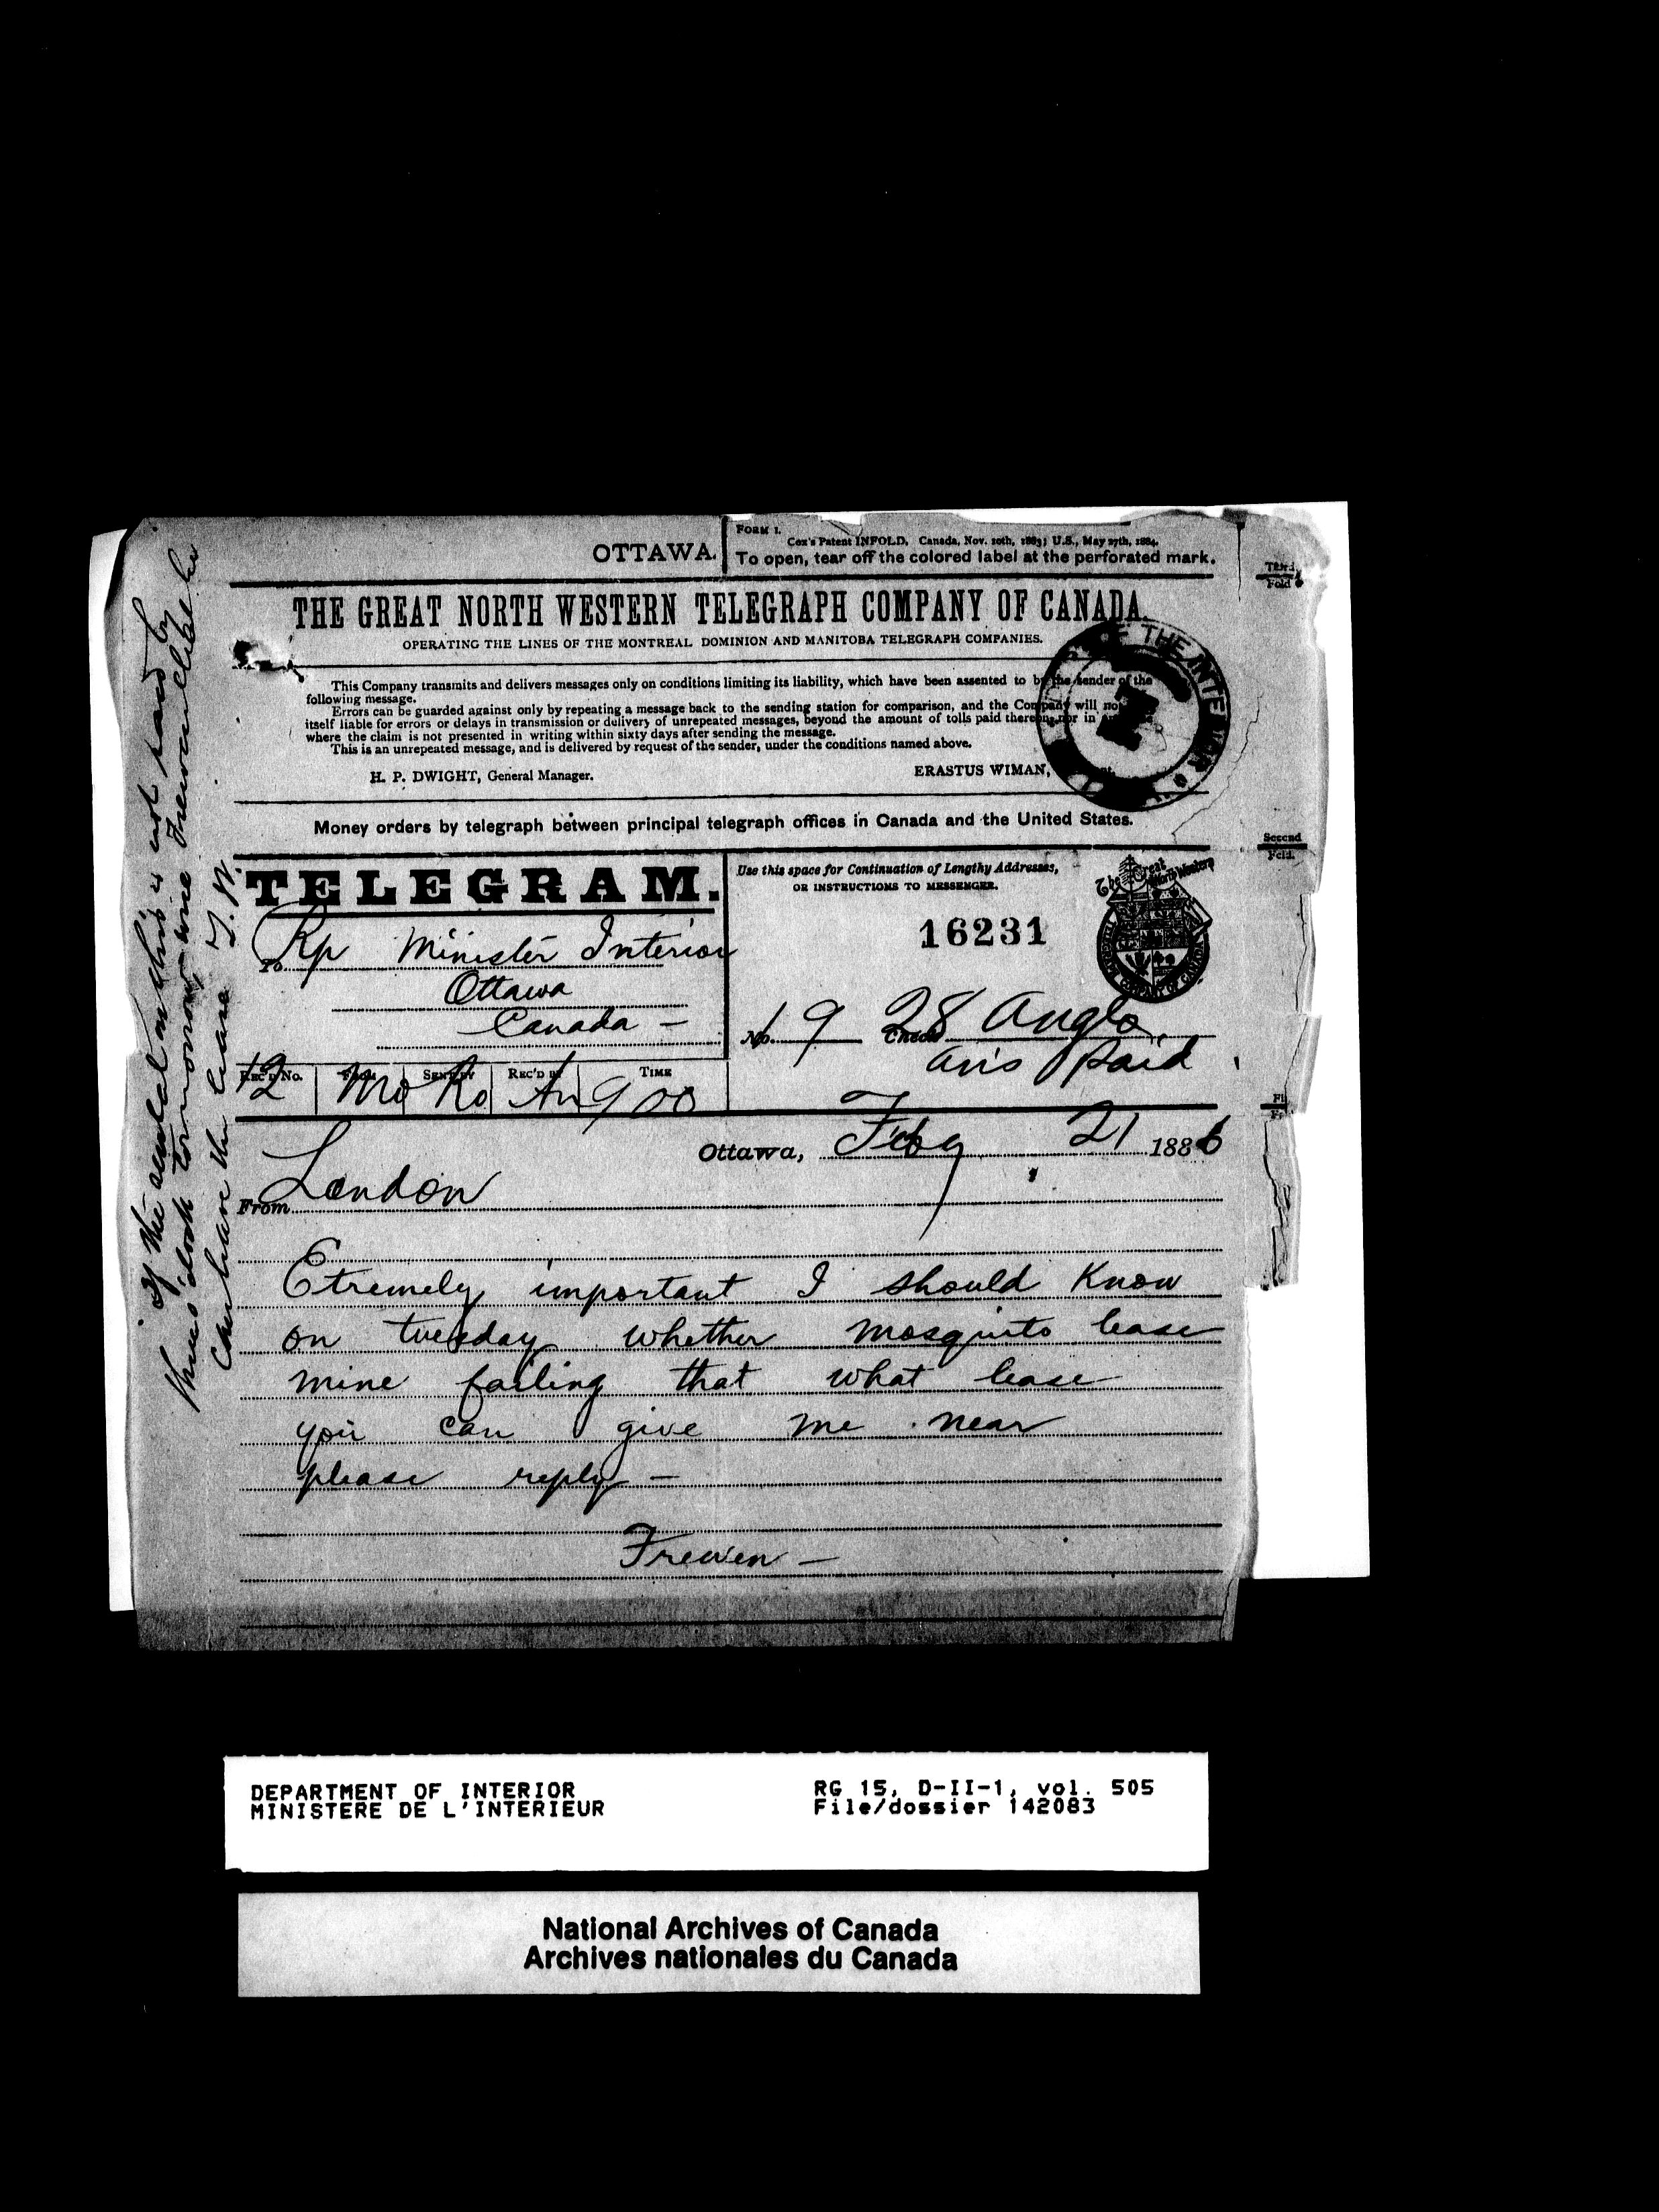 OTTAWA.
FORM 1.
Cox's Patent INFOLD, Canada, Nov. 20th, 1883; U.S., May 27th, 1884.
To open, tear off the colored label at the perforated mark.
Third
Fold
THE GREAT NORTH WESTERN TELEGRAPH COMPANY OF CANADA.
OPERATING THE LINES OF THE MONTREAL DOMINION AND MANITOBA TELEGRAPH COMPANIES.
OF THE INTERIOR
This Company transmits and delivers messages only on conditions limiting its liability, which have been assented to by the sender of the
following message.
Errors can be guarded against only by repeating a message back to the sending station for comparison, and the Company will no
itself liable for errors or delays in transmission or delivery of unrepeated messages, beyond the amount of tolls paid thereon, nor in
where the claim is not presented in writing within sixty days after sending the message.
This is an unrepeated message, and is delivered by request of the sender, under the conditions named above.
H. P. DWIGHT, General Manager.
ERASTUS WIMAN,
Money orders by telegraph between principal telegraph offices in Canada and the United States.
Second
Fold.
TELEGRAM.
Use this space for Continuation of Lengthy Addresses,
OR INSTRUCTIONS TO MESSENGER.
The Great North Western
TELEGRAPH COMPANY OF CANADA
16231
To Rp Minister Interior
Ottawa
Canada -
No. 19 Check 28 Anglo
ans paid
REC'D No. FROM SENT BY REC'D BY TIME
12 Mo Ro An 9 00
Ottawa, Feby 21 1886
From London
Etremely important I should Know
on tuesday whether mosquito lease
mine failing that what lease
you can give me near
please reply -
Frewen -
If the rental on this is not paid by
three o'clock tomorrow wire Frewen that he
can have the lease T. W.
DEPARTMENT OF INTERIOR
MINISTERE DE L'INTERIEUR
RG 15, D-II-1, vol. 505
File/dossier 142083
National Archives of Canada
Archives nationales du Canada